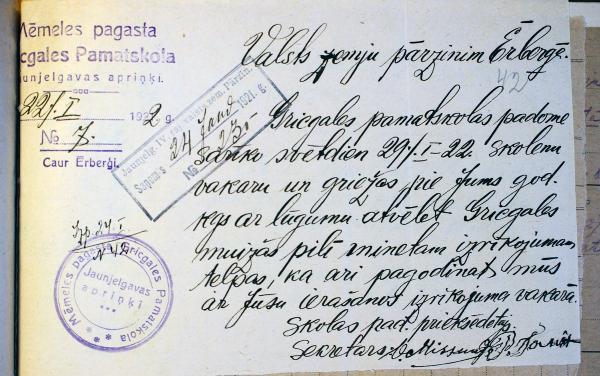 Mēmeles pagasta
Gricgales Pamatskola
Jaunjelgavas apriņķi.
22/I 1922 g.
№ 7.
Caur Erberģi.
Valsts zemju pārzinim Ērberģē.
42
Jaunjelg. IV raj. valsts zem. Pārzin.
Saņemts 24 Janv 1921. g.
№ 235
Gricgales pamatskolas padome
sarīko svētdien 29/I-22. skolēnu
vakaru un griežas pie Jums god.
kgs ar lūgumu atvēlēt Gricgales
muižas pilī minētam izrīkojumam
telpas, kā arī pagodināt mūs
ar Jūsu ierašanos izrīkojuma vakarā.
Skolas pad. priekšsēdētājs
Sekretars: O. Missun
24/I
№ 42
Mēmeles pagasta Gricgales Pamatskola
Jaunjelgavas
apriņķī